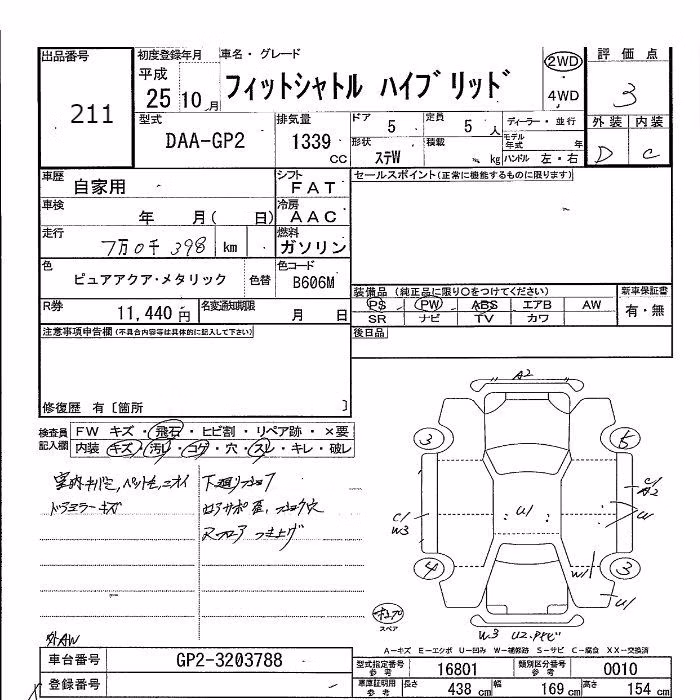 出品番号 211
初度登録年月 平成 25 10月
車名・グレード フィットシャトル ハイブリッド
2WD 4WD
評価点 3
外装 内装
D C
型式 DAA-GP2
排気量 1339 CC
ドア 5 定員 5 人
形状 ステW 積載 kg
ディーラー・並行
モデル年式 年
ハンドル 左・右
車歴 自家用
シフト FAT
セールスポイント(正常に機能するものに限ります)
車検 年 月( 日)
冷房 AAC
走行 7万0千398 km
燃料 ガソリン
色 ピュアアクア・メタリック 色替
色コード B606M
装備品 (純正品に限り○をつけてください)
新車保証書 有・無
PS PW ABS エアB AW
SR ナビ TV カワ
R券 11,440円 名変通知期限 月 日
後日品
注意事項申告欄(不具合内容等は具体的に記入して下さい)
修復歴 有〔箇所 〕
検査員記入欄
FW キズ・飛石・ヒビ割・リペア跡・×要
内装 キズ・汚レ・コゲ・穴・スレ・キレ・破レ
ドアミラーキズ
A2
3 5
C/ A2
C/ W3
U/ U/
W/
4 3
U/
スペア
W3
外AW
A-キズ E-エクボ U-凹み W-補修跡 S-サビ C-腐食 XX-交換済
車台番号 GP2-3203788
登録番号
型式指定番号 参考 16801
類別区分番号 参考 0010
車庫証明用 参考 長さ 438 cm 幅 169 cm 高さ 154 cm